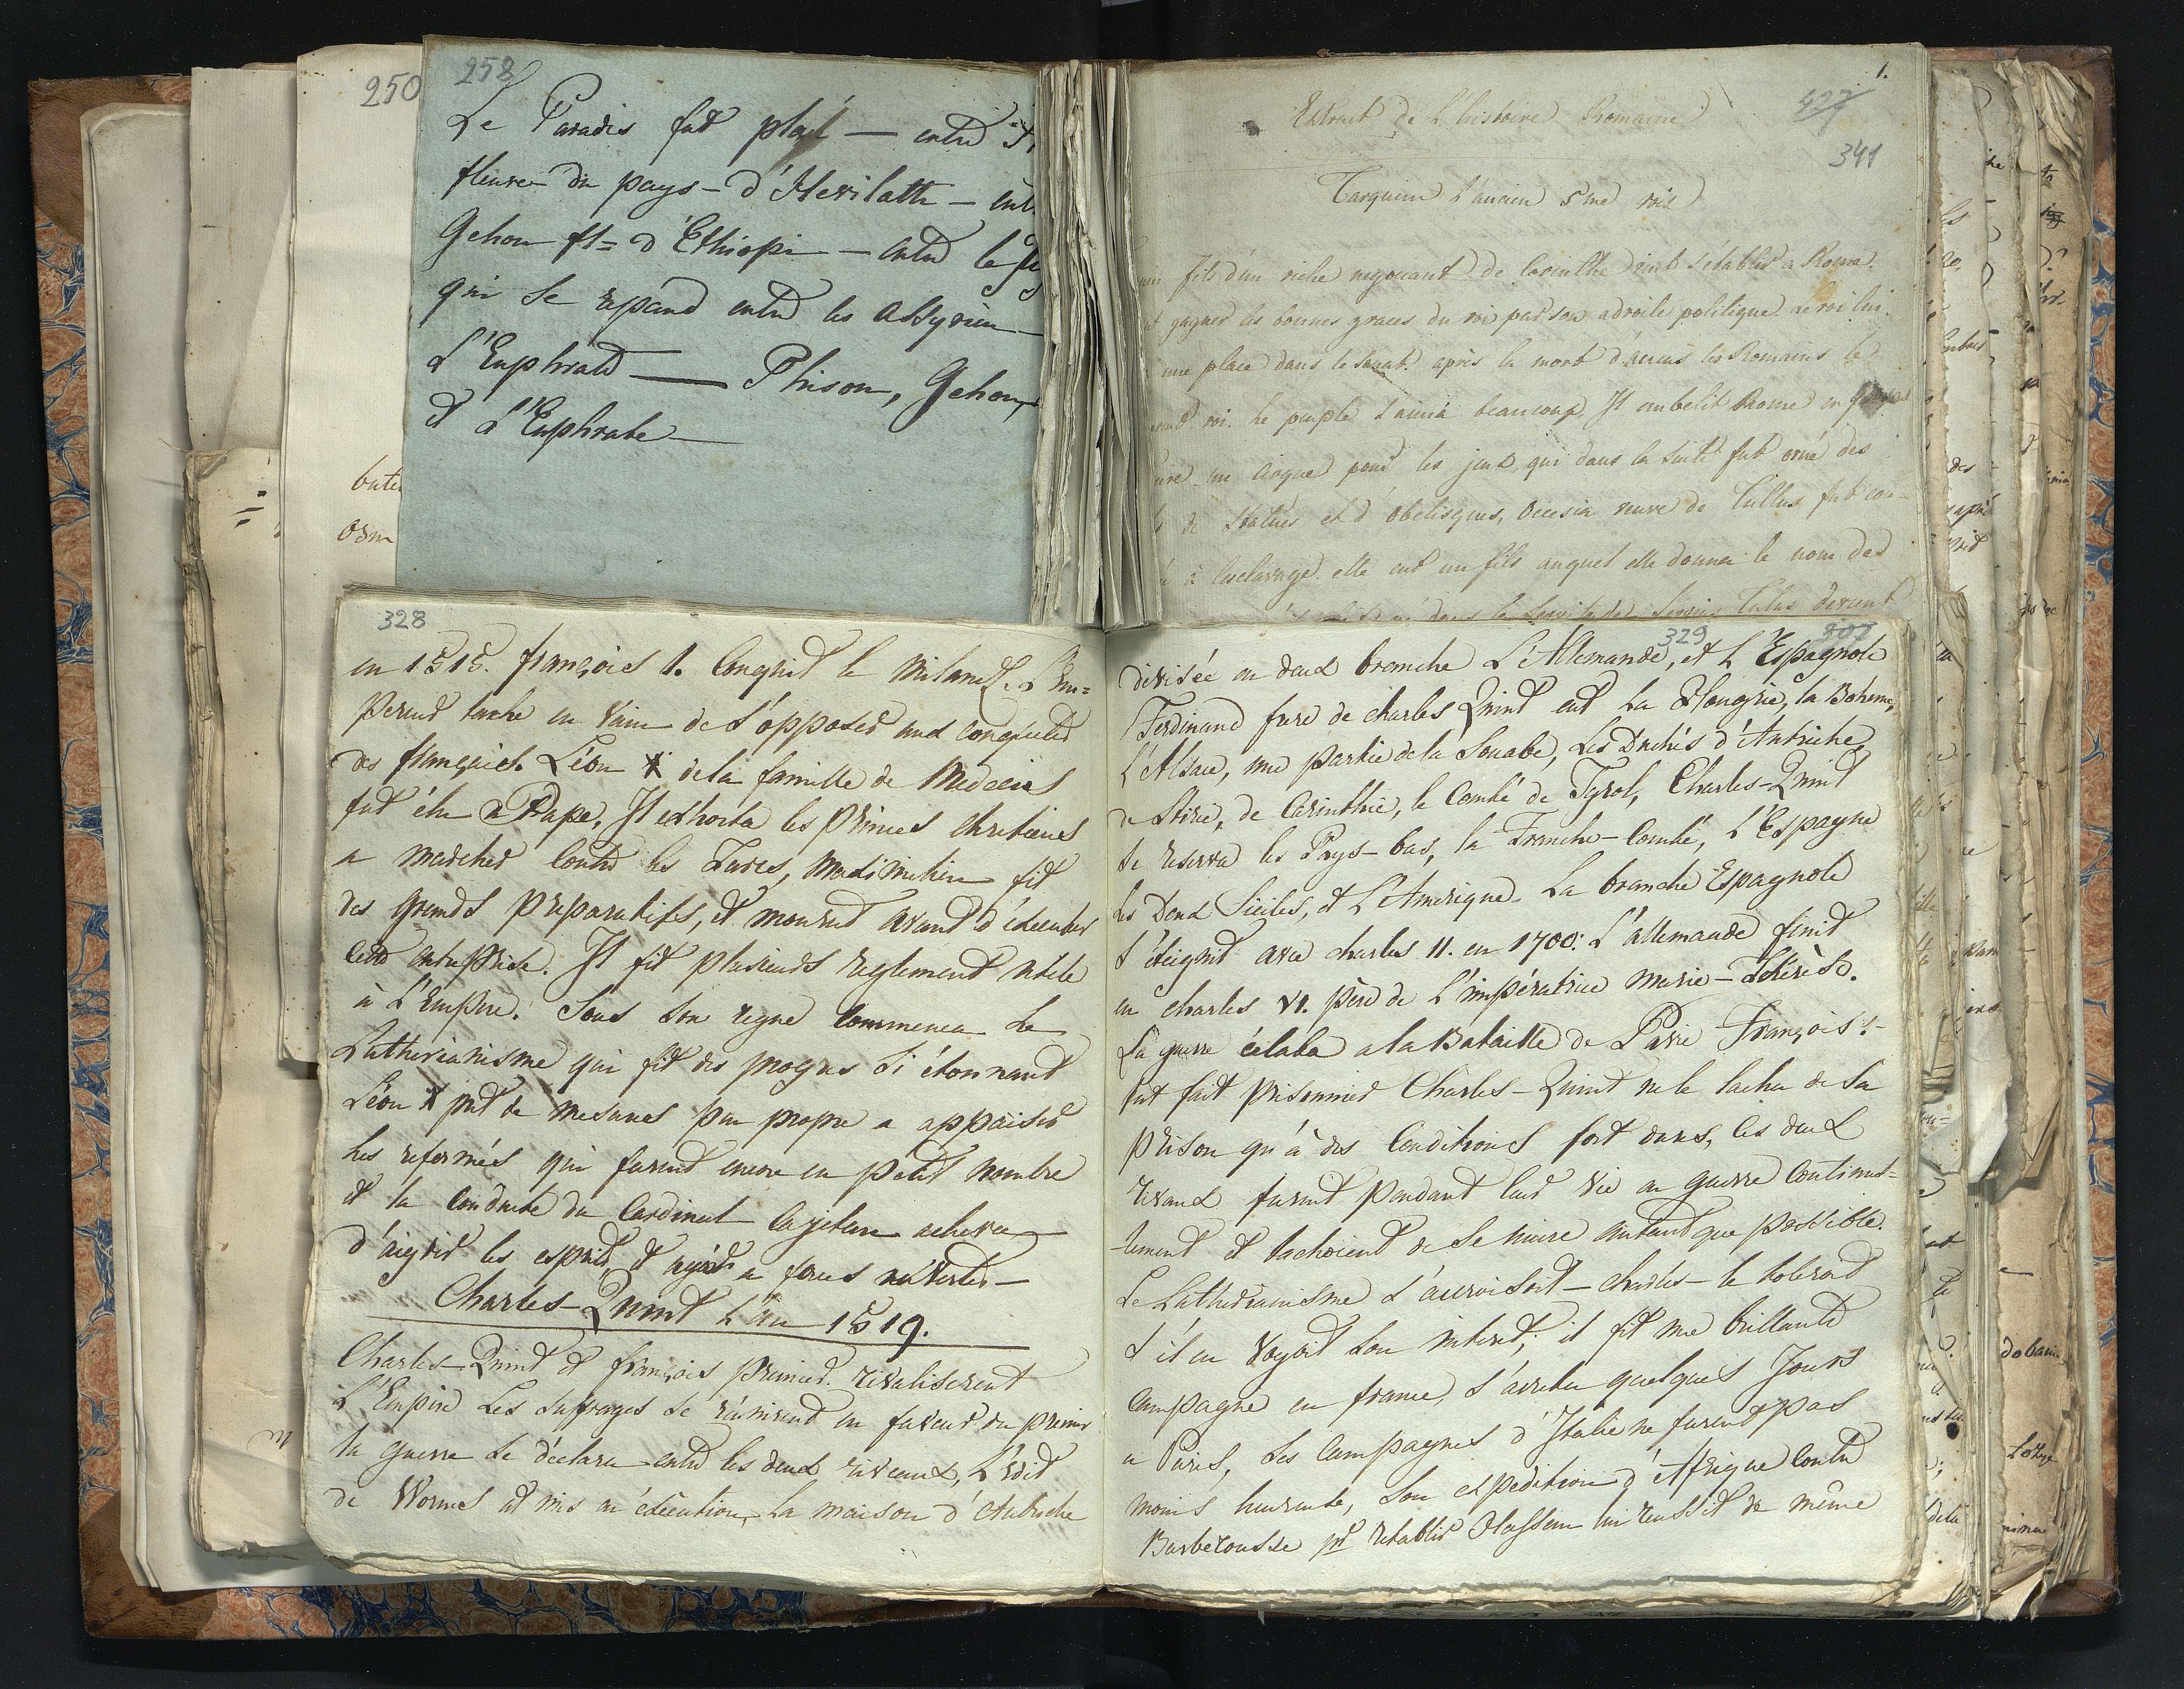 250
258
Le Paradis fut placé — entre
fleuve du pays d'Hevilath —
Gehon fl= d'Ethiopie — entre le
qui se repand entre les Assyrien —
L'Euphrate — Phison, Gehon,
et L'Euphrate —
1.
427
341
Extrait de L'histoire Romaine
Tarquin L'ancien 5me roi
fils d'un riche negociant de Corinthe vint s'établir a Rome.
gagner les bonnes graces du roi par son adroite politique Le roi lui
une place dans le Senat. après la mort d'Ancus les Romains le
roi. Le peuple l'aima beaucoup. Il embelit Rome en
un cirque pour les jeux, qui dans la suite fut orné des
de Statues et d'obelisques, Ocrisia veuve de Tullus fut con-
à l'esclavage. elle eut un fils auquel elle donna le nom de
Servius Tulus devient
328
en 1515. françois 1. Conquit le Milanez. L'Em=
pereur tache en vain de s'opposer aux conquetes
des français. Léon X de la famille de Medecis
fut élu Pape, Il exhorta les Princes chretiens
a marcher contre les Turcs, Maximilien fit
des grands preparatifs, et mourut avant d'executer
cette entreprise. Il fit plusieurs reglement utile
à L'Empire. Sous son regne commenca Le
Lutherianisme qui fit des progres si étonnant
Léon X prit de mesures peu propre a appaiser
Les reformés qui furent encore en petit nombre
et la conduite du Cardinal Cajetan acheva
d'aigrir les esprits,
Charles-Quint L'An 1519.
Charles-Quint et françois premier. rivaliserent
L'Empire Les sufrages se réunirent en faveur du premier
la guerre se déclara entre les deux riveaux, L'édit
de Worms et mis en éxecution, La maison d'Autriche
329
307
divisée en deux branche L'Allemande, et L'Espagnole
Ferdinand frere de charles Quint eut La Hongrie, la Boheme,
L'Alsace, une partie de la Souabe, Les Duchés d'Autriche
de Stirie, de Carinthie, le Comté de Tyrol, Charles-Quint
se reserva les Pays-bas, la Franche-Comté, L'Espagne
les Deux Siciles, et L'Amerique. La branche Espagnole
s'éteignit avec charles 11. en 1700. L'allemande finit
en charles VI. père de L'impératrice Marie-Thérèse.
La guerre éclata a la Bataille de Pavie François 1
fut fait prisonnier Charles-Quint ne le lacha de sa
prison qu'à des Conditions fort dures, les deux
rivaux furent pendant leur vie en guerre continuel-
-lement et tachoient de se nuire autant que possible.
Le Lutherianisme s'acroisoit — charles — le tolerat
s'il en voyoit son interet; il fit une brillante
campagne en france, s'arreta quelques Jours
a Paris, Les Campagnes d'Italie ne furent pas
moins heureuse, Son expedition d'Afrique contre
Barberousse pr retablir Hassem lui reussit de même